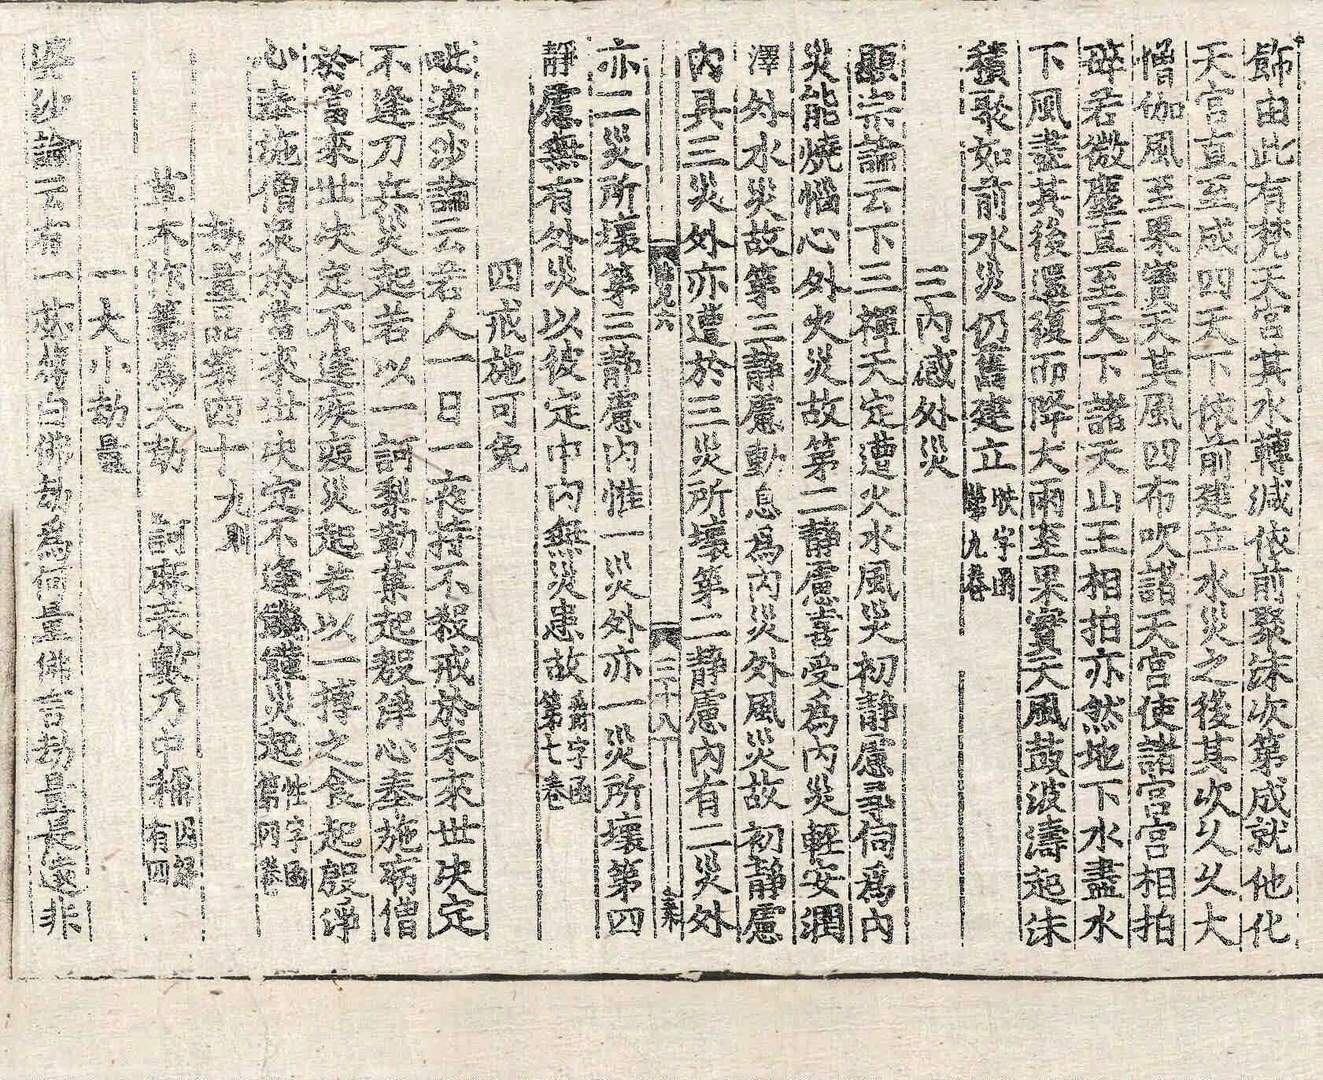 飾由此有梵天宮其水轉減依前聚沫次第成就他化
天宮直至咸四天下依前建立水災之後其次久久大
僧伽風至果實天其風四布吹諸天宮使諸宮宮相拍
碎若微塵直至天下諸天山王相拍亦然地下水盡水
下風盡其後還復而降大雨至果實天風鼓波濤起沫
積聚如前水災仍舊建立
三內感外災
顯宗論云下三禪天定遭火水風災初靜慮尋伺為內
災能燒惱心外火災故第二靜慮喜受為內災輕安潤
澤外水災故第三靜慮動息為內災外風災故初靜慮
內具三災外亦遭於三災所壞第二靜慮內有二災外
二十八
亦二災所壞第三靜慮內惟一災外亦一災所壞第四
靜慮無有外災以彼定中內無災患故爵字函第七卷
四戒施可免
毗婆沙論云若人一日一夜持不殺戒於未來世決定
不逢刀兵災起若以一訶梨勒菓起殷淨心奉施病僧
於當來世決定不逢疾疫災起若以一摶之食起殷淨
心奉施僧眾於當來世決定不逢饑饉災起性字函第四卷
劫量品第四十九則
世本作舊為大劫 訶麻表數乃中稱有四
一大小劫量
婆沙論云有一苾蒭白佛劫為何量佛言劫量長遠非